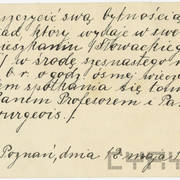 szczycić swą bytnością
ad, który wydaje w swo
mieszkaniu Słowackiego
/ w środę szesnastego m
b.r. o godz. ósmej wiecz
spotkania się tam
Panem Profesorem i Pa
ourgeois./.
Poznań, dnia 12 maja